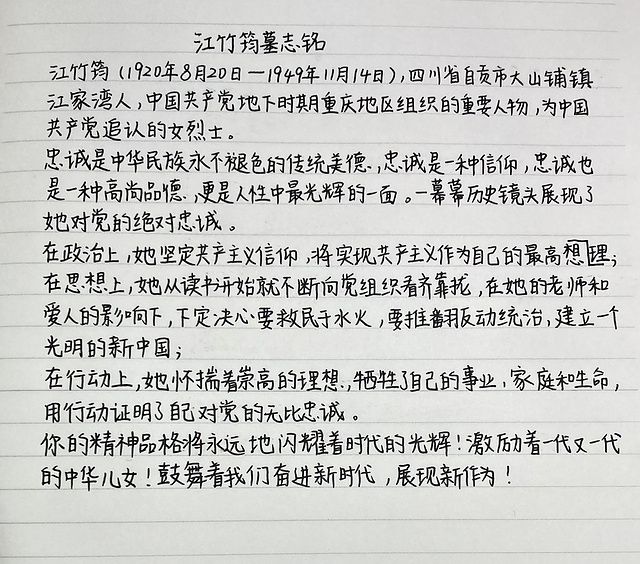 江竹筠墓志铭
江竹筠（1920年8月20日—1949年11月14日），四川省自贡市大山铺镇
江家湾人，中国共产党地下时期重庆地区组织的重要人物，为中国
共产党追认的女烈士。
忠诚是中华民族永不褪色的传统美德，忠诚是一种信仰，忠诚也
是一种高尚品德，更是人性中最光辉的一面。一幕幕历史镜头展现了
她对党的绝对忠诚。
在政治上，她坚定共产主义信仰，将实现共产主义作为自己的最高想理；
在思想上，她从读书开始就不断向党组织看齐靠拢，在她的老师和
爱人的影响下，下定决心要救民于水火，要推翻反动统治，建立一个
光明的新中国；
在行动上，她怀揣着崇高的理想，牺牲了自己的事业、家庭和生命，
用行动证明了自己对党的无比忠诚。
你的精神品格将永远地闪耀着时代的光辉！激励着一代又一代
的中华儿女！鼓舞着我们奋进新时代，展现新作为！